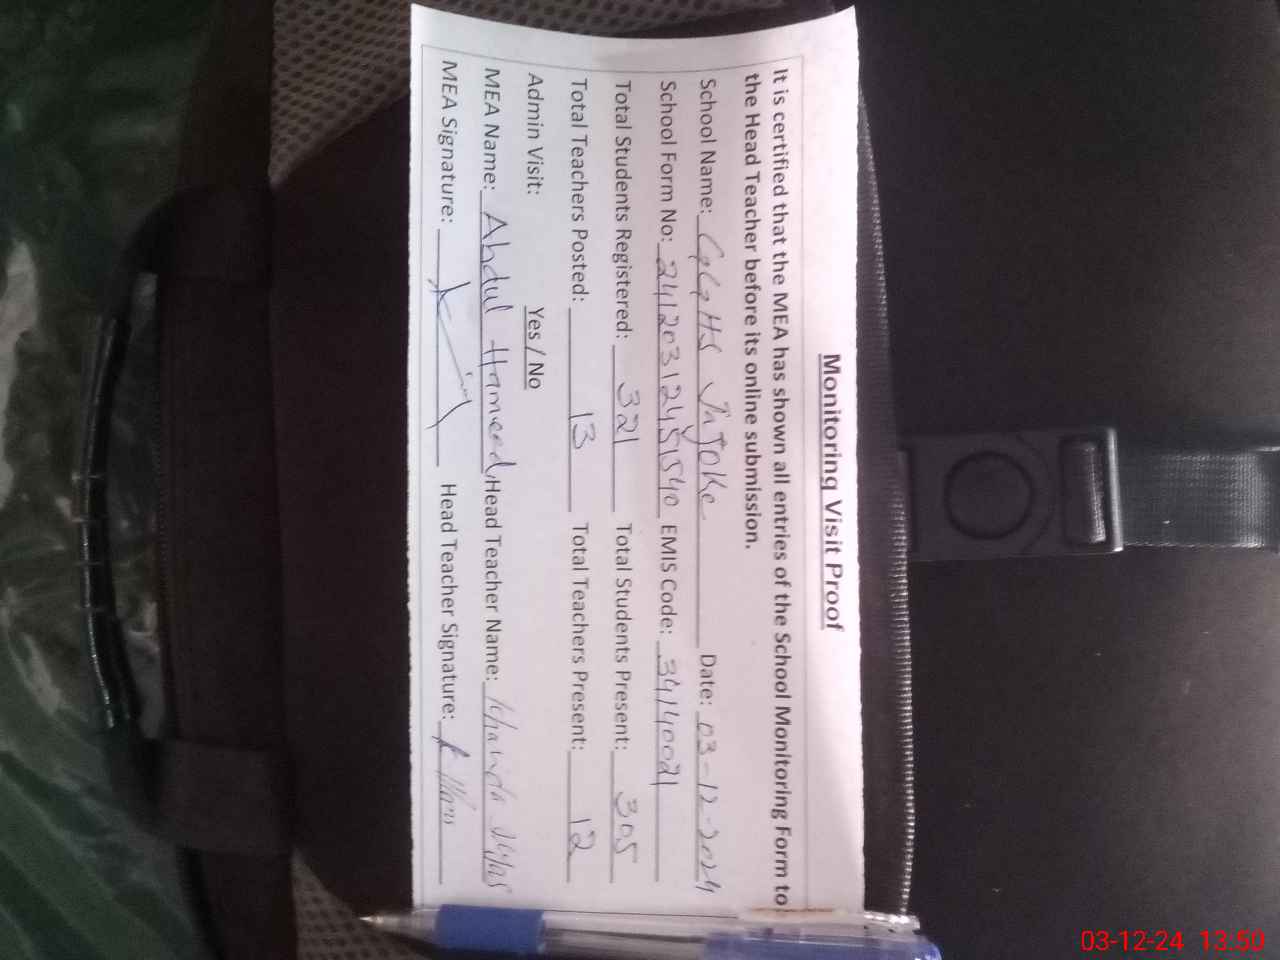 Monitoring Visit Proof
It is certified that the MEA has shown all entries of the School Monitoring Form to
the Head Teacher before its online submission.
School Name: GGHS Jajoke Date: 03-12-2024
School Form No: 241203124551540 EMIS Code: 34140021
Total Students Registered: 321 Total Students Present: 305
Total Teachers Posted: 13 Total Teachers Present: 12
Admin Visit: Yes / No
MEA Name: Abdul Hameed Head Teacher Name: Khalida Ilyas
MEA Signature: Head Teacher Signature:
03-12-24 13:50